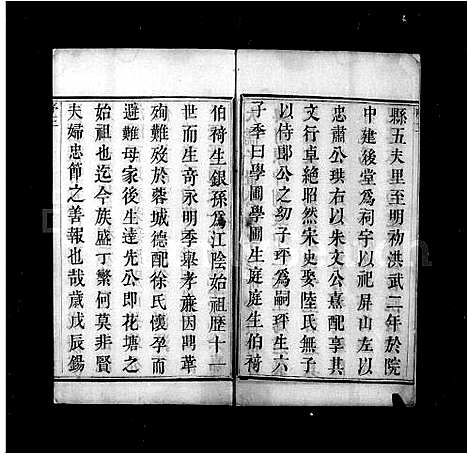 縣五夫里至明初洪武二年於院
中建後堂為祠宇以祀屏山左以
忠肅公珙右以朱文公熹配享其
文行卓絕昭然宋史娶陸氏無子
以侍郎公之幼子玶為嗣玶生六
子季曰學圃學圃生庭庭生伯犄
伯犄生銀孫為江陰始祖歷十一
世而生奇永明季舉孝廉因鬥革
殉難歿於蓉城德配徐氏懷孕而
避難母家後生逵先公即花塘之
始祖也迄今族盛丁繁何莫非賢
夫婦忠節之善報也哉歲戊辰錫